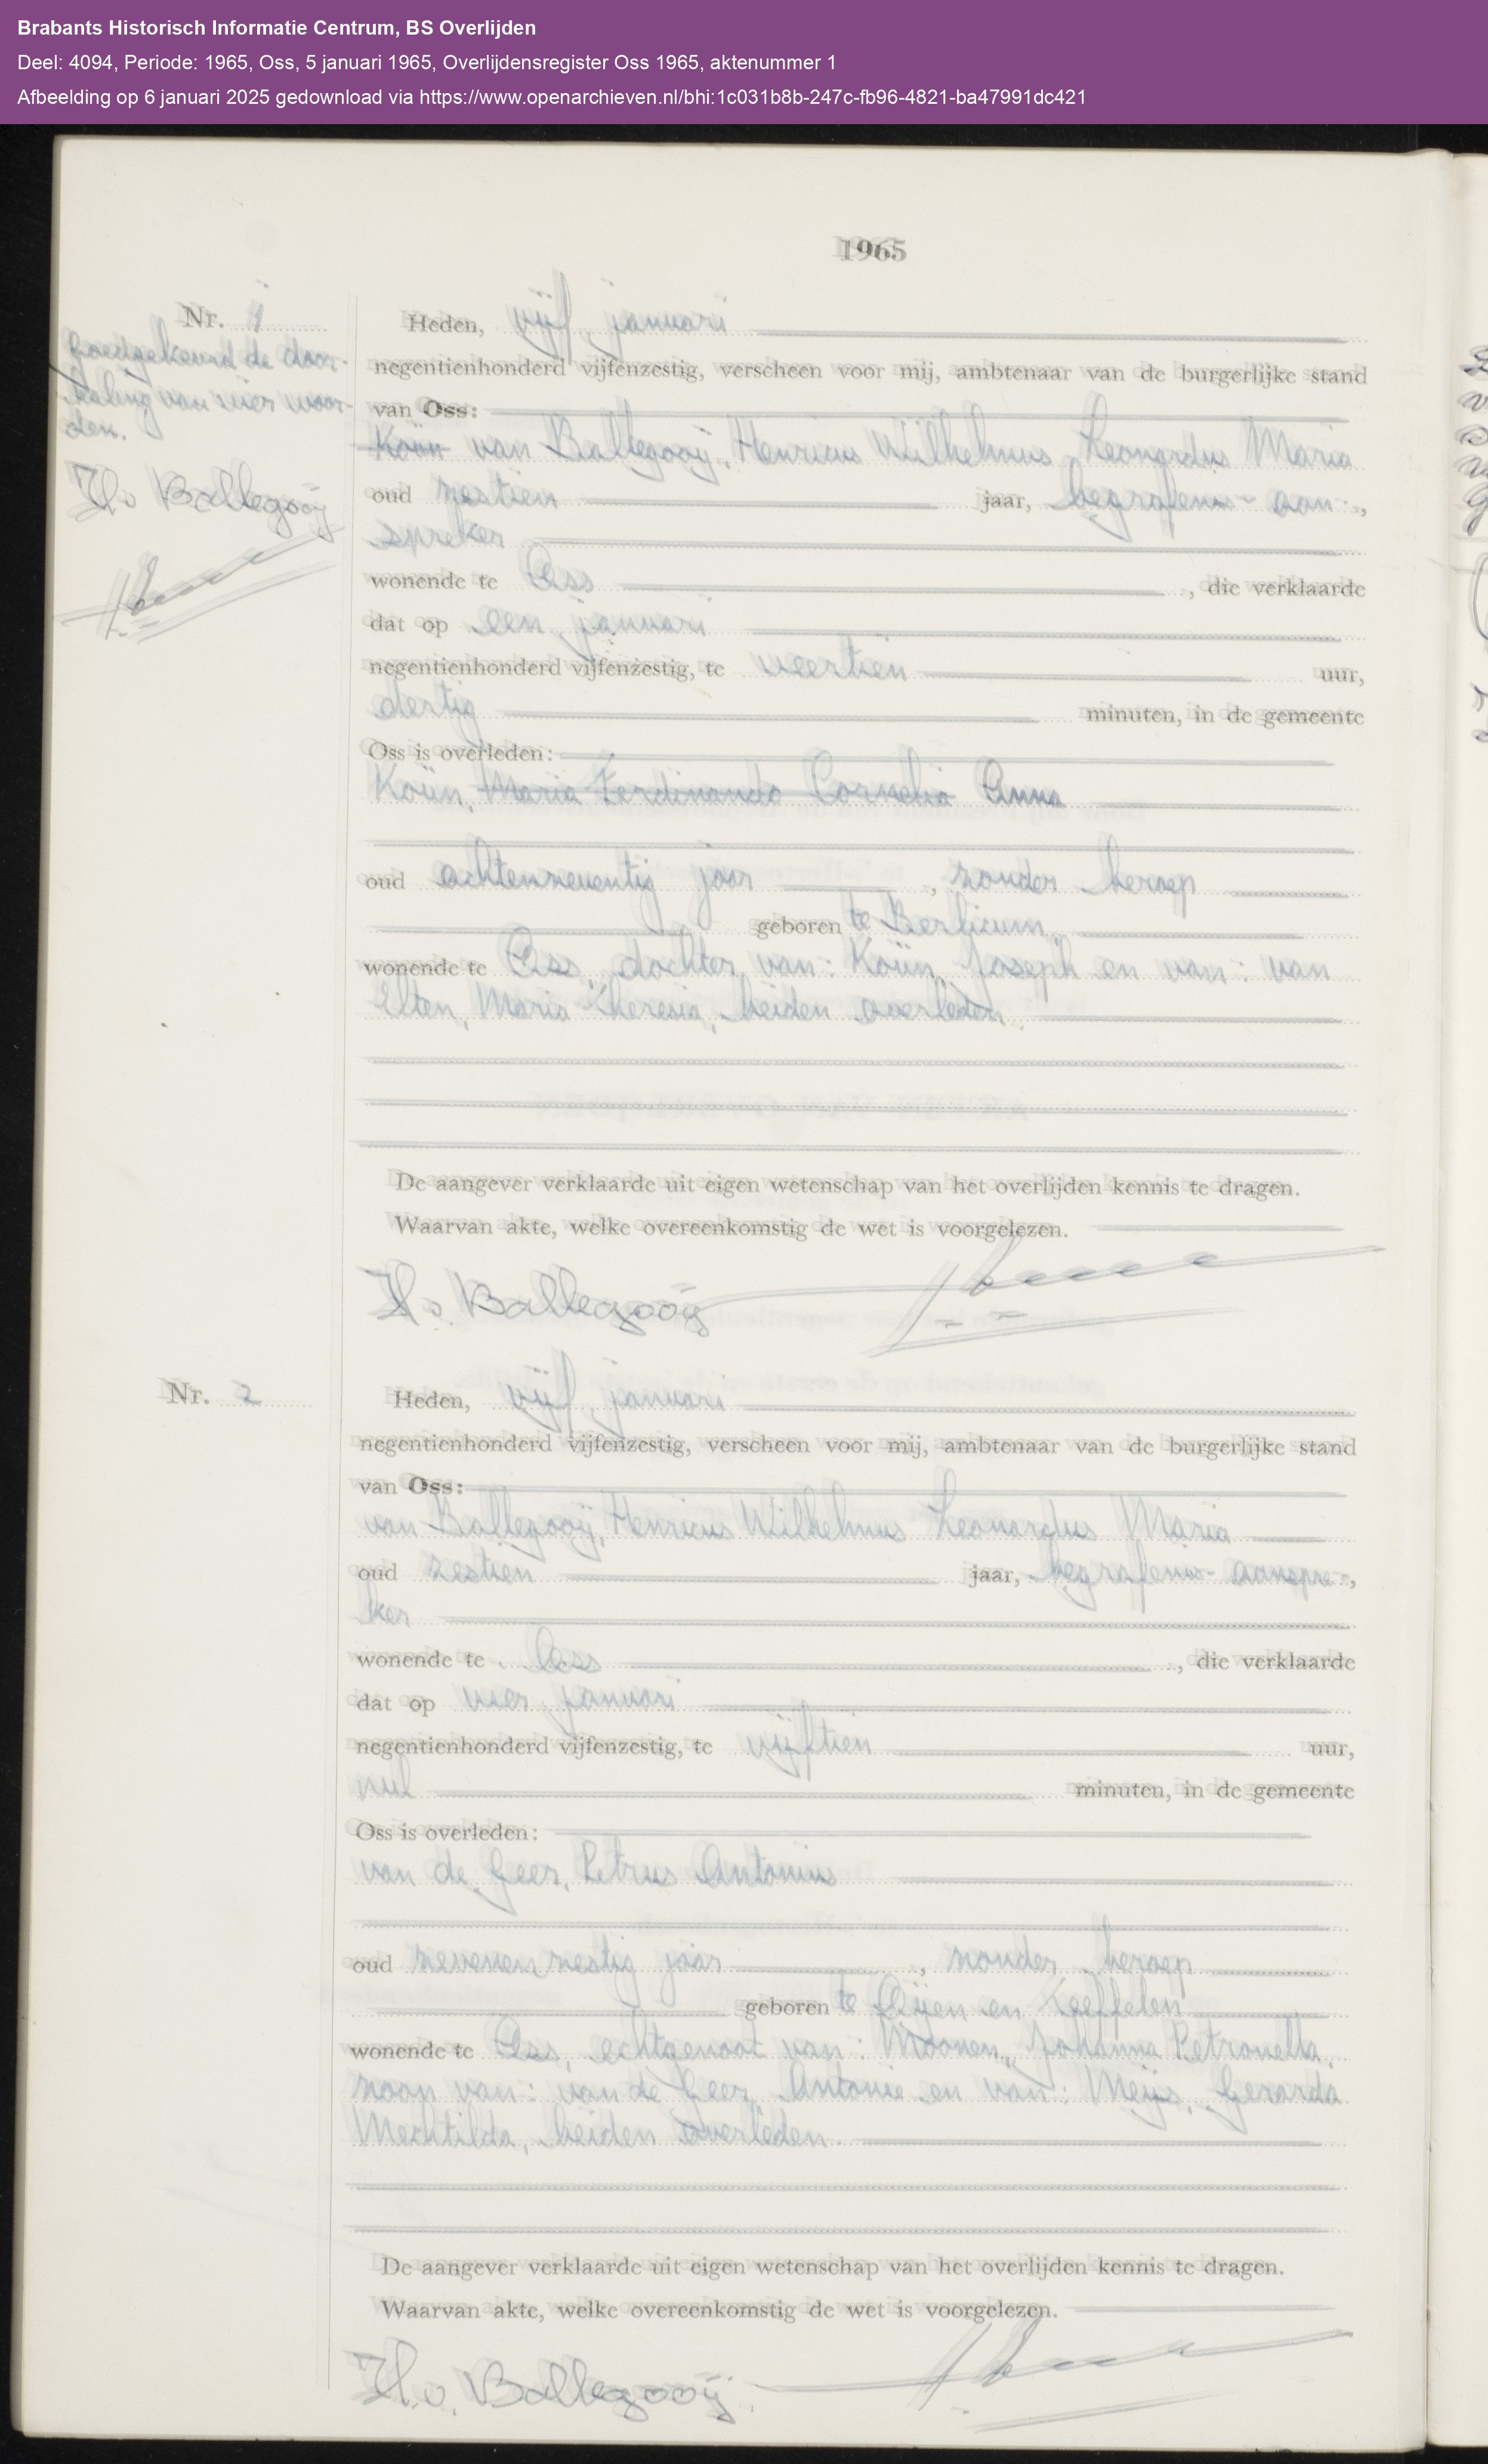 Brabants Historisch Informatie Centrum, BS Overlijden
Deel: 4094, Periode: 1965, Oss, 5 januari 1965, Overlijdensregister Oss 1965, aktenummer 1
Afbeelding op 6 januari 2025 gedownload via https://www.openarchieven.nl/bhi:1c031b8b-247c-fb96-4821-ba47991dc421
1965
Nr. 1
Goedgekeurd de door-
haling van vier woor-
den.
H.v. Ballegooÿ
Heden, vijf januari
negentienhonderd vijfenzestig, verscheen voor mij, ambtenaar van de burgerlijke stand
van Oss:
Koün van Ballegooÿ, Henricus Wilhelmus Leonardus Maria
oud zestien jaar, begrafenis- aan-,
spreker
wonende te Oss, die verklaarde
dat op een januari
negentienhonderd vijfenzestig, te veertien uur,
dertig minuten, in de gemeente
Oss is overleden:
Koün, Maria Ferdinanda Cornelia Anna
oud achtenzeventig jaar, zonder beroep
geboren te Berlicum,
wonende te Oss, dochter van: Koün, Joseph en van: van
Elten, Maria Theresia, beiden overleden.
De aangever verklaarde uit eigen wetenschap van het overlijden kennis te dragen.
Waarvan akte, welke overeenkomstig de wet is voorgelezen.
H.v. Ballegooÿ
Nr. 2
Heden, vijf januari
negentienhonderd vijfenzestig, verscheen voor mij, ambtenaar van de burgerlijke stand
van Oss:
van Ballegooÿ, Henricus Wilhelmus Leonardus Maria
oud zestien jaar, begrafenis- aanspre-,
ker
wonende te Oss, die verklaarde
dat op vier januari
negentienhonderd vijfenzestig, te vijftien uur,
nul minuten, in de gemeente
Oss is overleden:
van de Geer, Petrus Antonius
oud zevenenzestig jaar, zonder beroep
geboren te Oijen en Teeffelen
wonende te Oss, echtgenoot van: Moonen, Johanna Petronella,
zoon van: van de Geer, Antonie en van: Meijs, Gerarda
Mechtilda, beiden overleden.
De aangever verklaarde uit eigen wetenschap van het overlijden kennis te dragen.
Waarvan akte, welke overeenkomstig de wet is voorgelezen.
H.v. Ballegooÿ